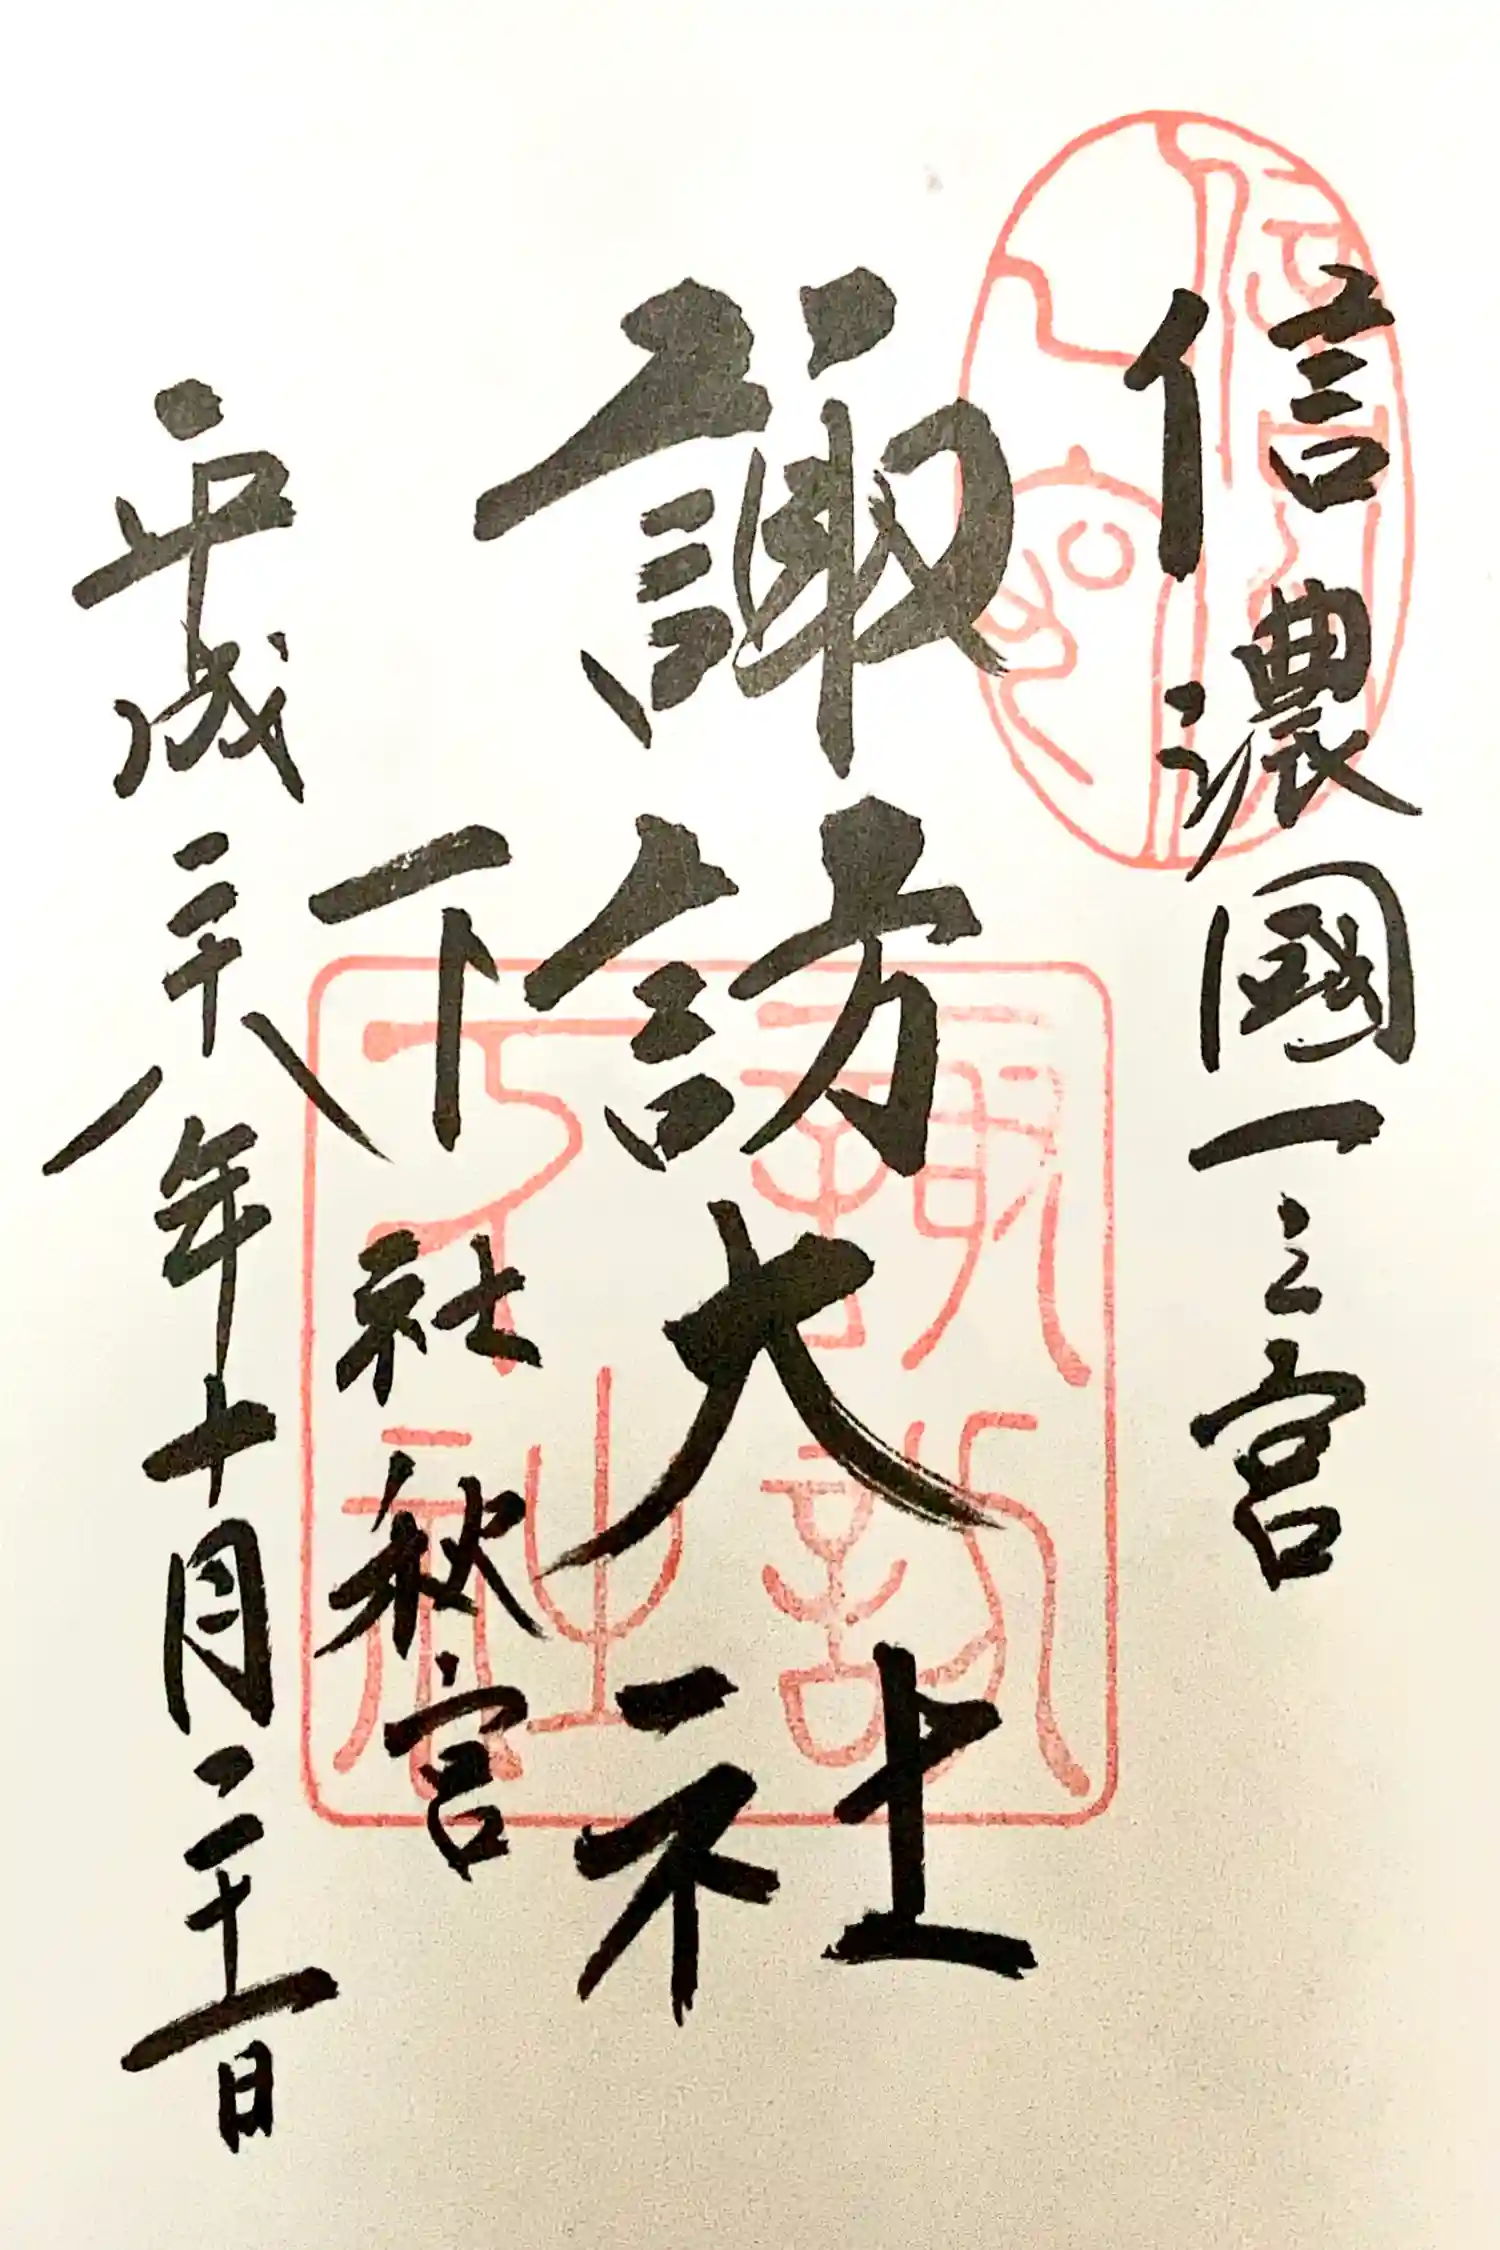 信濃國一之宮
諏訪大社
下社秋宮
平成二十八年十月二十一日
諏訪
下社